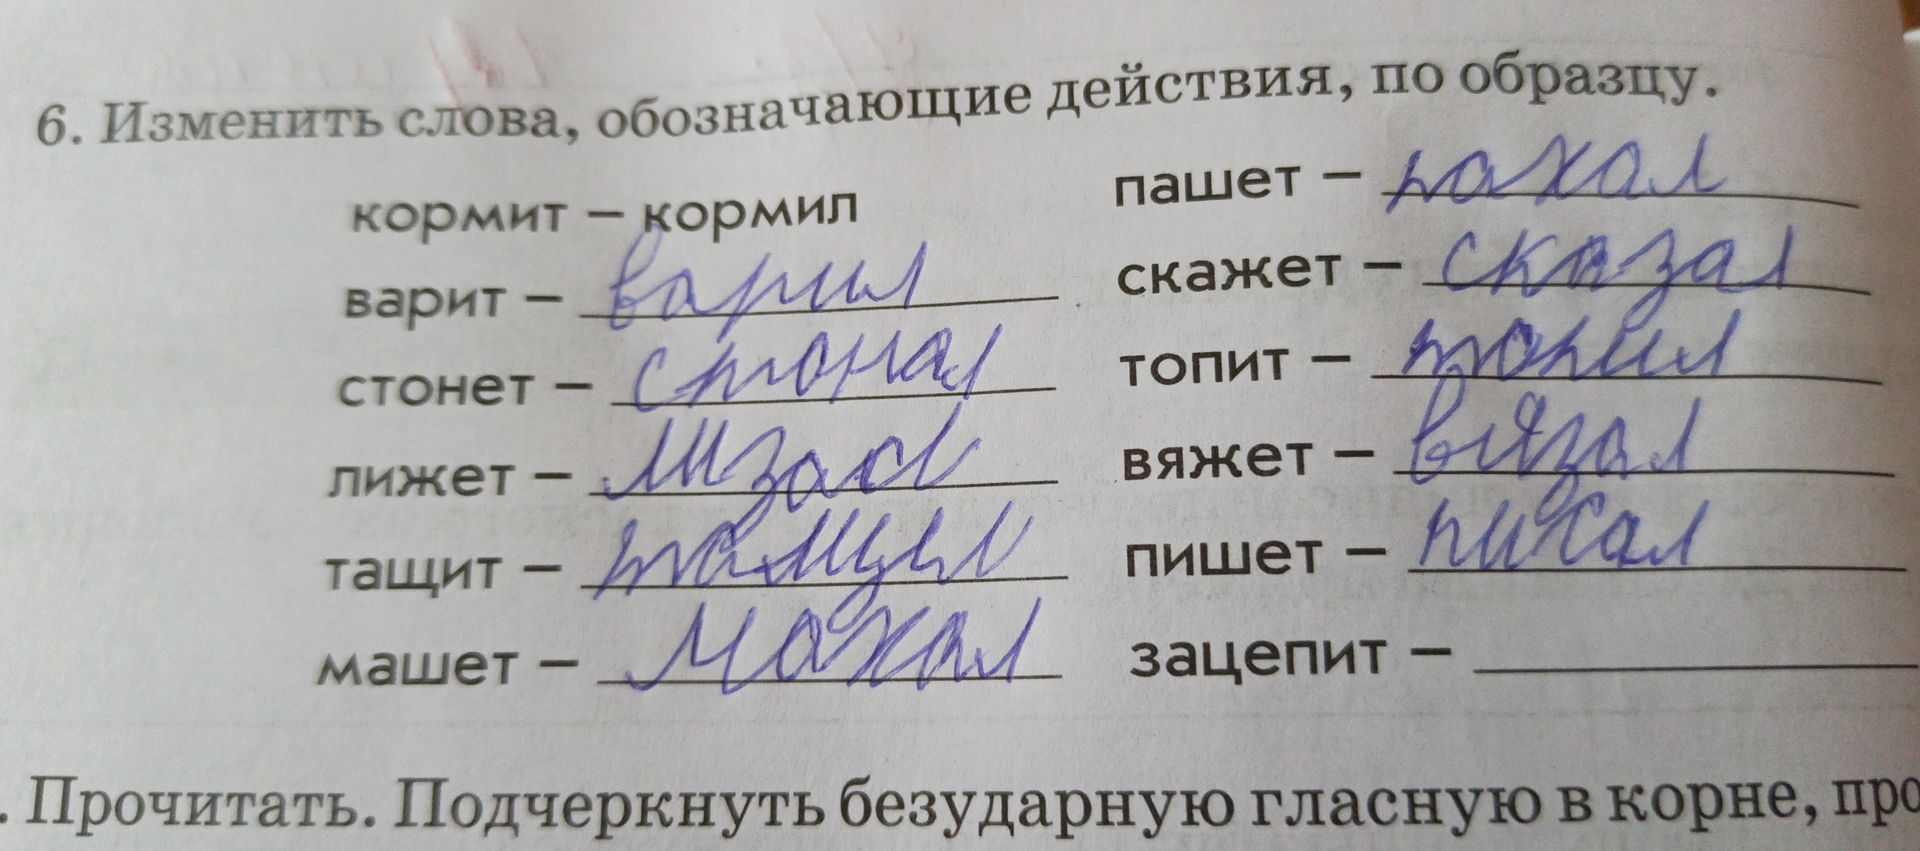 6. Изменить слова, обозначающие действия, по образцу.
кормит – кормил
варит – варил
стонет – стонал
лижет – лизал
тащит – тащил
машет – махал
пашет – пахал
скажет – сказал
топит – топил
вяжет – вязал
пишет – писал
зацепит –
. Прочитать. Подчеркнуть безударную гласную в корне, про